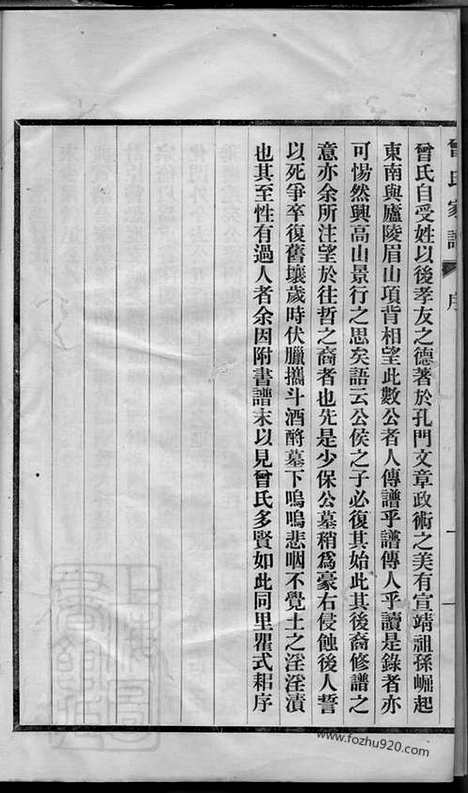 曾氏家譜 序 一
曾氏自受姓以後孝友之德著於孔門文章政術之美有宣靖祖孫崛起
東南與廬陵眉山項背相望此數公者人傳譜乎譜傳人乎讀是錄者亦
可惕然興高山景行之思矣語云公侯之子必復其始此其後裔修譜之
意亦余所注望於往哲之裔者也先是少保公墓稍爲豪右侵蝕後人誓
以死爭卒復舊壤歲時伏臘攜斗酒酹墓下嗚嗚悲咽不覺土之淫淫漬
也其至性有過人者余因附書譜末以見曾氏多賢如此同里瞿式耜序
www.fozhu920.com